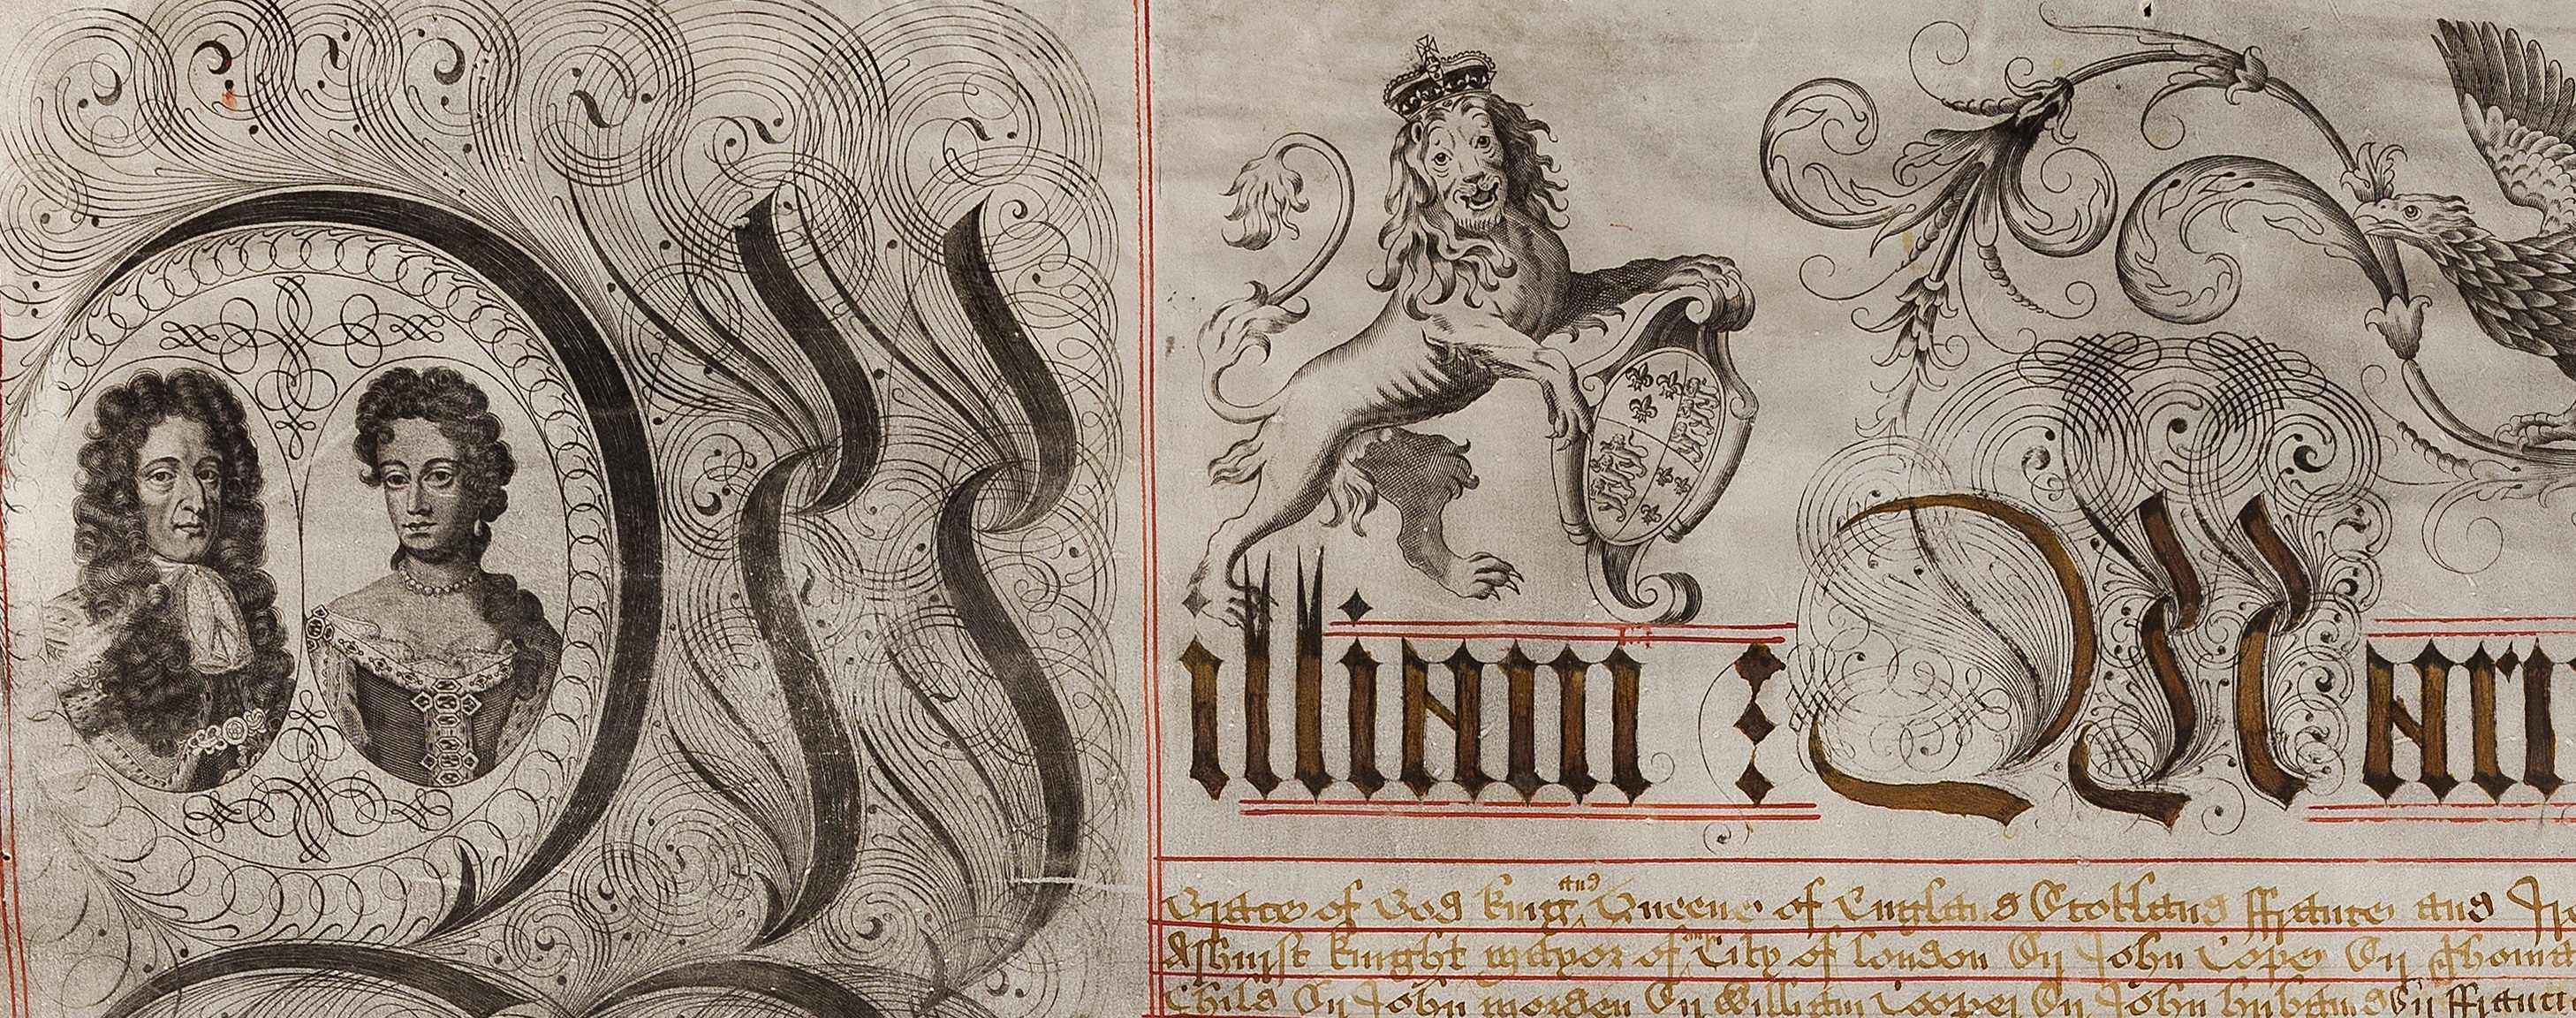 William : Mari
Grace of God King and Queene of England Scotland ffrance and Ir
Ashurst Knight mayor of our City of London Sir John Cope Sir Thomas
Child Sir John morden Sir William Cooper Sir John huband Sir ffranci